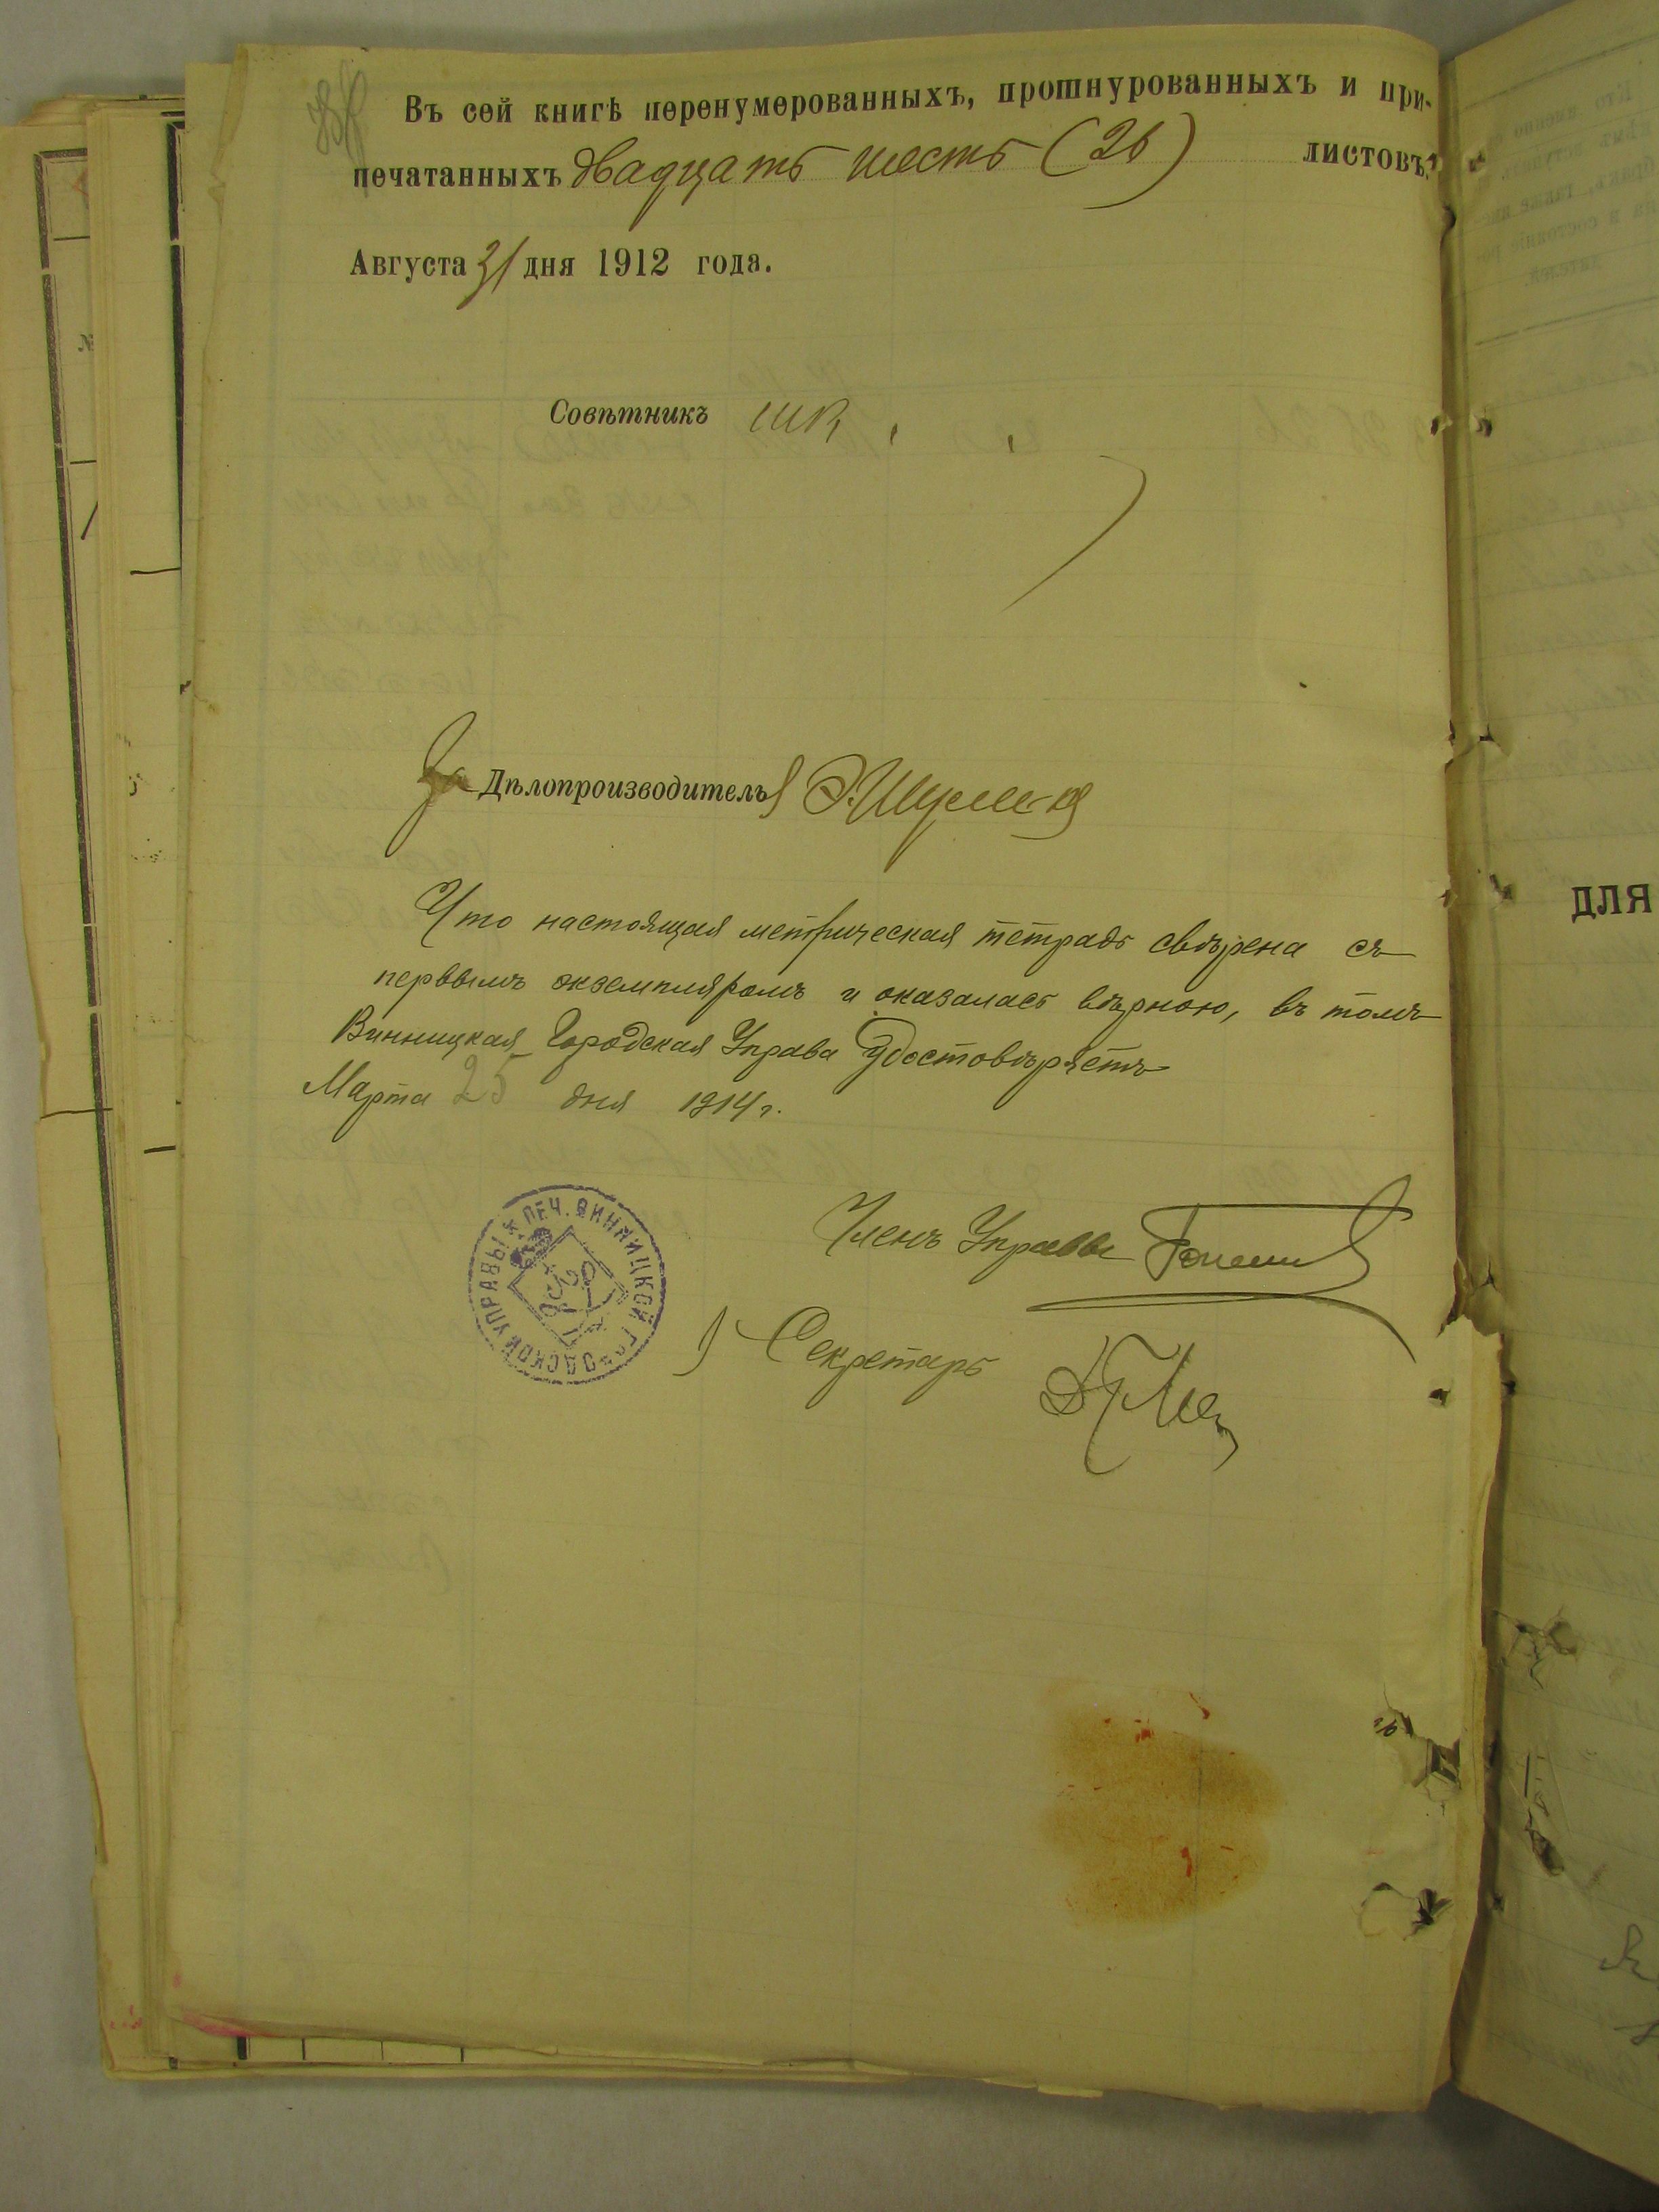 Въ сей книгѣ перенумерованныхъ, прошнурованныхъ и при-
печатанныхъ двадцать шесть (26) листовъ.
Августа 31 дня 1912 года.
Совѣтникъ
За Дѣлопроизводителья
Что настоящая метрическая тетрадь свѣрена съ
первымъ экземпляромъ и оказалась вѣрною, въ томъ
Винницкая Городская Управа удостовѣряетъ
Марта 25 дня 1914 г.
ПЕЧ. ВИННИЦКОЙ ГОРОДСКОЙ УПРАВЫ
Членъ Управы
Секретарь
ДЛЯ